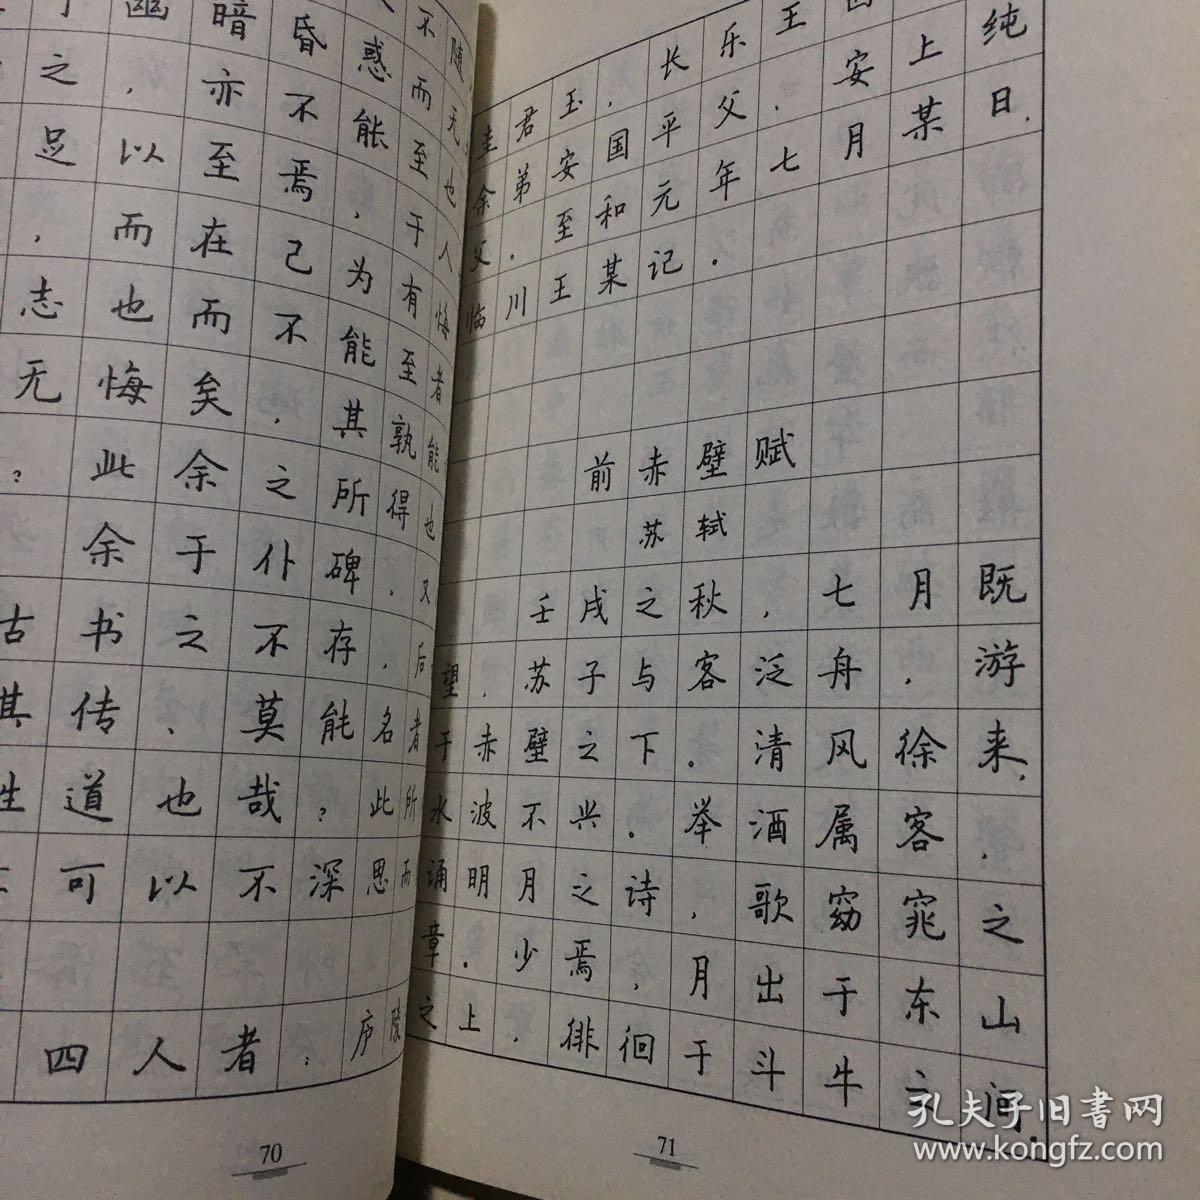 不随
幽暗昏惑而无
之，亦不能至也
足以至焉，于人
，而在己为有悔
志也而不能至者
无悔矣，其孰能
？此余之所得也
余于仆碑，又
古书之不存，后
其传，莫能名者
道也哉？此所
可以不深思而
四人者：庐陵
70
圭君玉，长乐王回
余弟安国平父，安上纯
父．至和元年七月某日．
临川王某记．
前赤壁赋
苏轼
壬戌之秋，七月既
望．苏子与客泛舟，游
于赤壁之下．清风徐来．
水波不兴．举酒属客，
诵明月之诗，歌窈窕之
章．少焉，月出于东山
之上．徘徊于斗牛之间．
71
孔夫子旧书网
www.kongfz.com